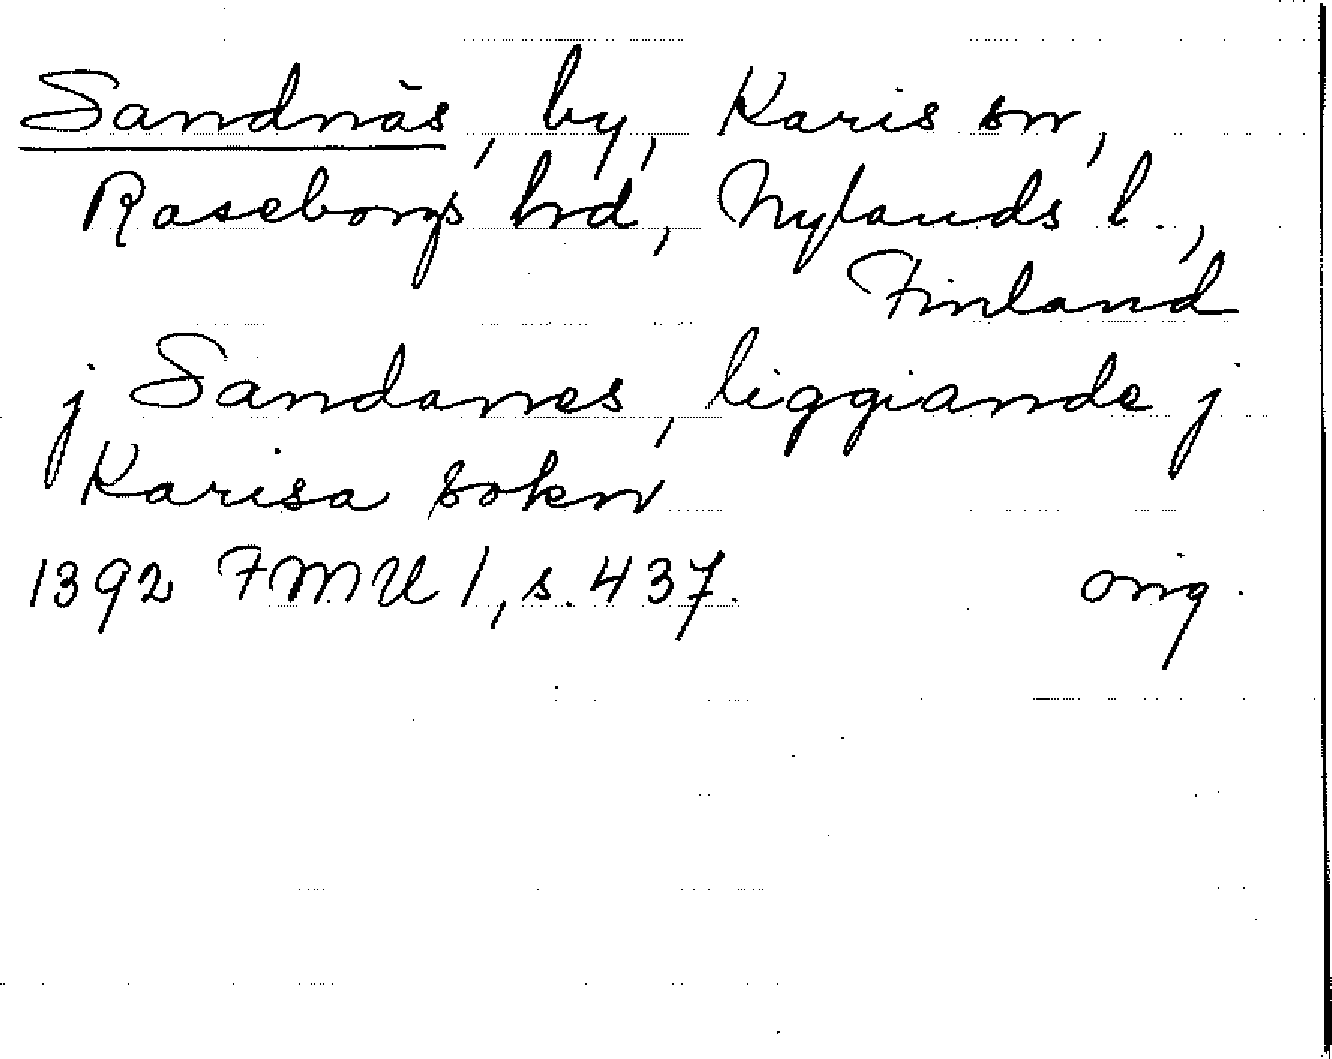 Sandnäs, by, Karis sn,
Raseborgs hrd, Nylands l.,
Finland
j Sandanes, liggiande j
Karisa sokn
1392 FMU 1, s. 437. orig.